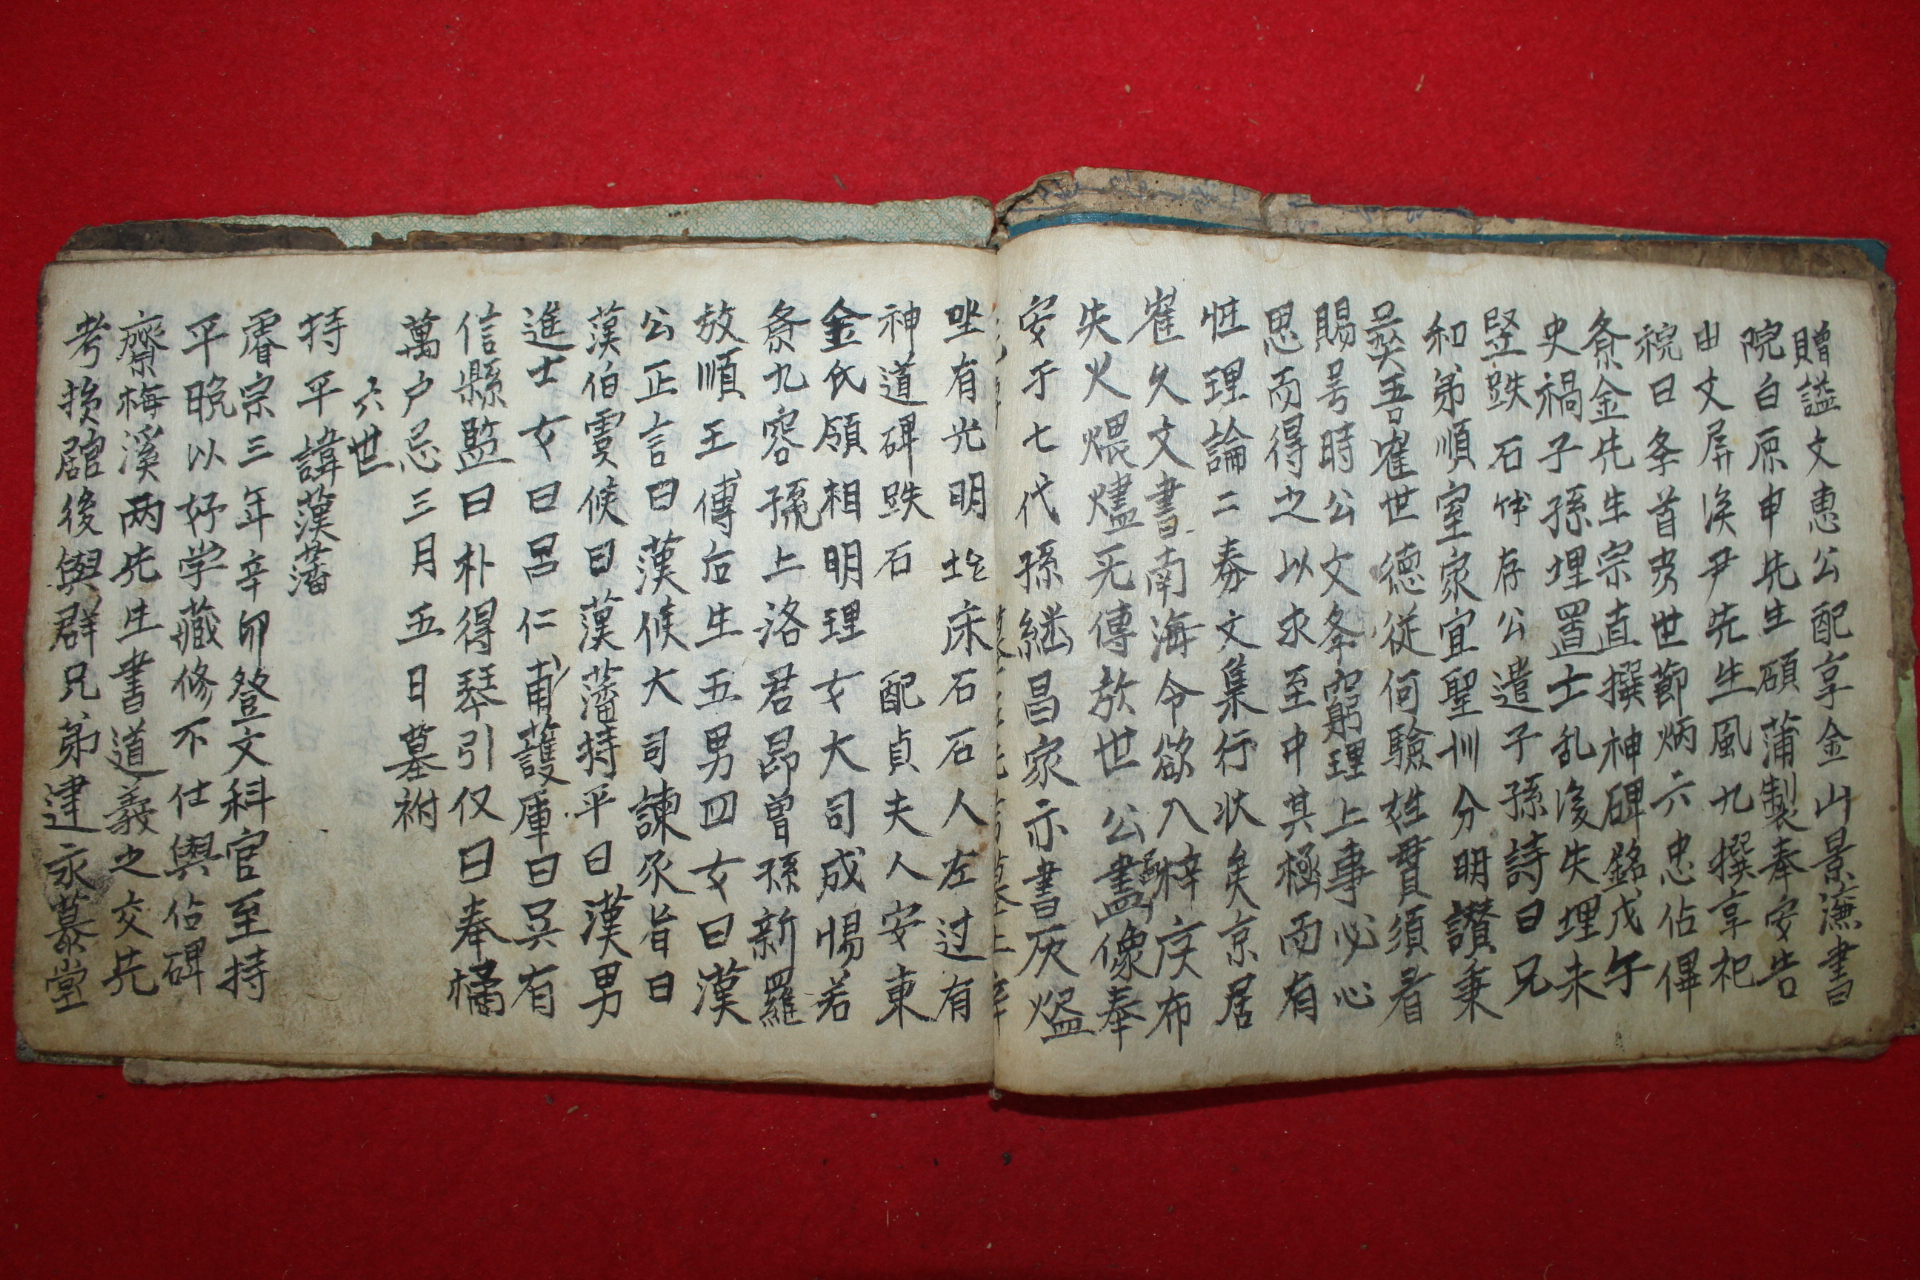 贈諡文惠公配享金山景濂書
院白原申先生碩蒲製奉安告
由文屏溪尹先生風九撰享祀
祝曰冬首勇世節炳六忠佔俾
斎金先生宗直撰神碑銘戊午
史禍子孫埋置士乱後失埋未
竪跌石伻存公遺子孫詩曰兄
和弟順室家宜聖訓分明讃秉
吳吾宦世德従何驗姓貫須看
賜号時公文冬窮理上事必心
思而得之以求至中其極而有
性理論二券文集行狀矣京居
崔久文書南海令欲入梓庋布
失火煨燼旡傳於世公畵像奉
安于七代孫継昌家亦書灰燼
坐有光明坮床石石人左过有
神道碑跌石 配貞夫人安東
金氏領相明理女大司成惕若
斎九容孫上洛君昂曾孫新羅
敖順王傳后生五男四女曰漢
公正言曰漢候大司諫汖旨曰
漢伯虞候曰漢藩持平曰漢男
進士女曰呂仁甫護庫曰吳有
信縣監曰朴得琴引仅曰奉橘
萬户忌三月五日墓祔
六世
持平諱漢藩
睿宗三年辛卯登文科官至持
平晩以好学藏修不仕與佔碑
齋梅溪两先生書道義之交先
考損舘後與群兄弟建永慕堂